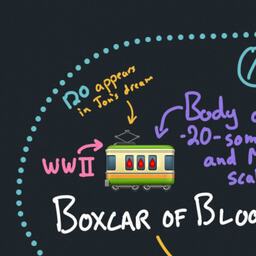 DO appears
in Jon's dream
Body
-20-som
and M
sca
WWII
BOXCAR OF BLOO